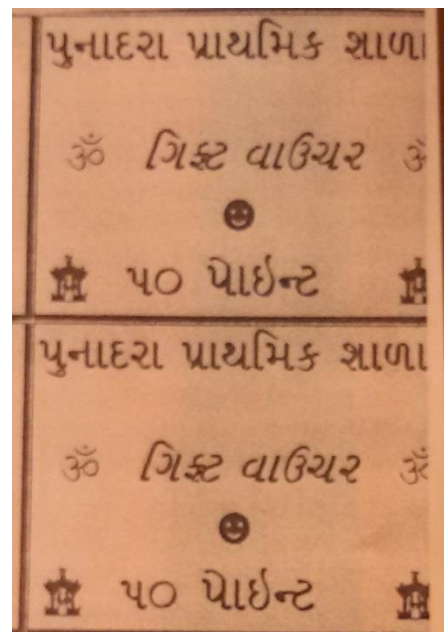 પુનાદરા પ્રાથમિક શાળા
ૐ ગિફ્ટ વાઉચર ૐ
૫૦ પોઇન્ટ
પુનાદરા પ્રાથમિક શાળા
ૐ ગિફ્ટ વાઉચર ૐ
૫૦ પોઇન્ટ